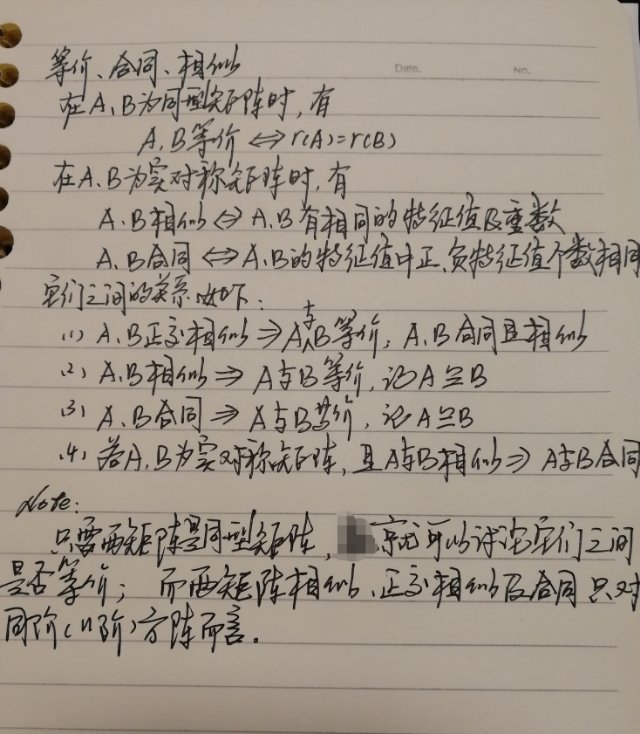 等价、合同、相似
Date. No.
在A、B为同型矩阵时,有
A、B等价⇔r(A)=r(B)
在A、B为实对称矩阵时,有
A、B相似⇔A、B有相同的特征值及重数
A、B合同⇔A、B的特征值中正、负特征值个数相同
它们之间的关系如下:
(1) A、B正交相似⇒A与B等价,A、B合同且相似
(2) A、B相似⇒A与B等价,记A≅B
(3) A、B合同⇒A与B等价,记A≅B
(4) 若A、B为实对称矩阵,且A与B相似⇒A与B合同
Note:
只要两矩阵是同型矩阵,就可以讨论它们之间
是否等价;而两矩阵相似、正交相似及合同只对
同阶(n阶)方阵而言。